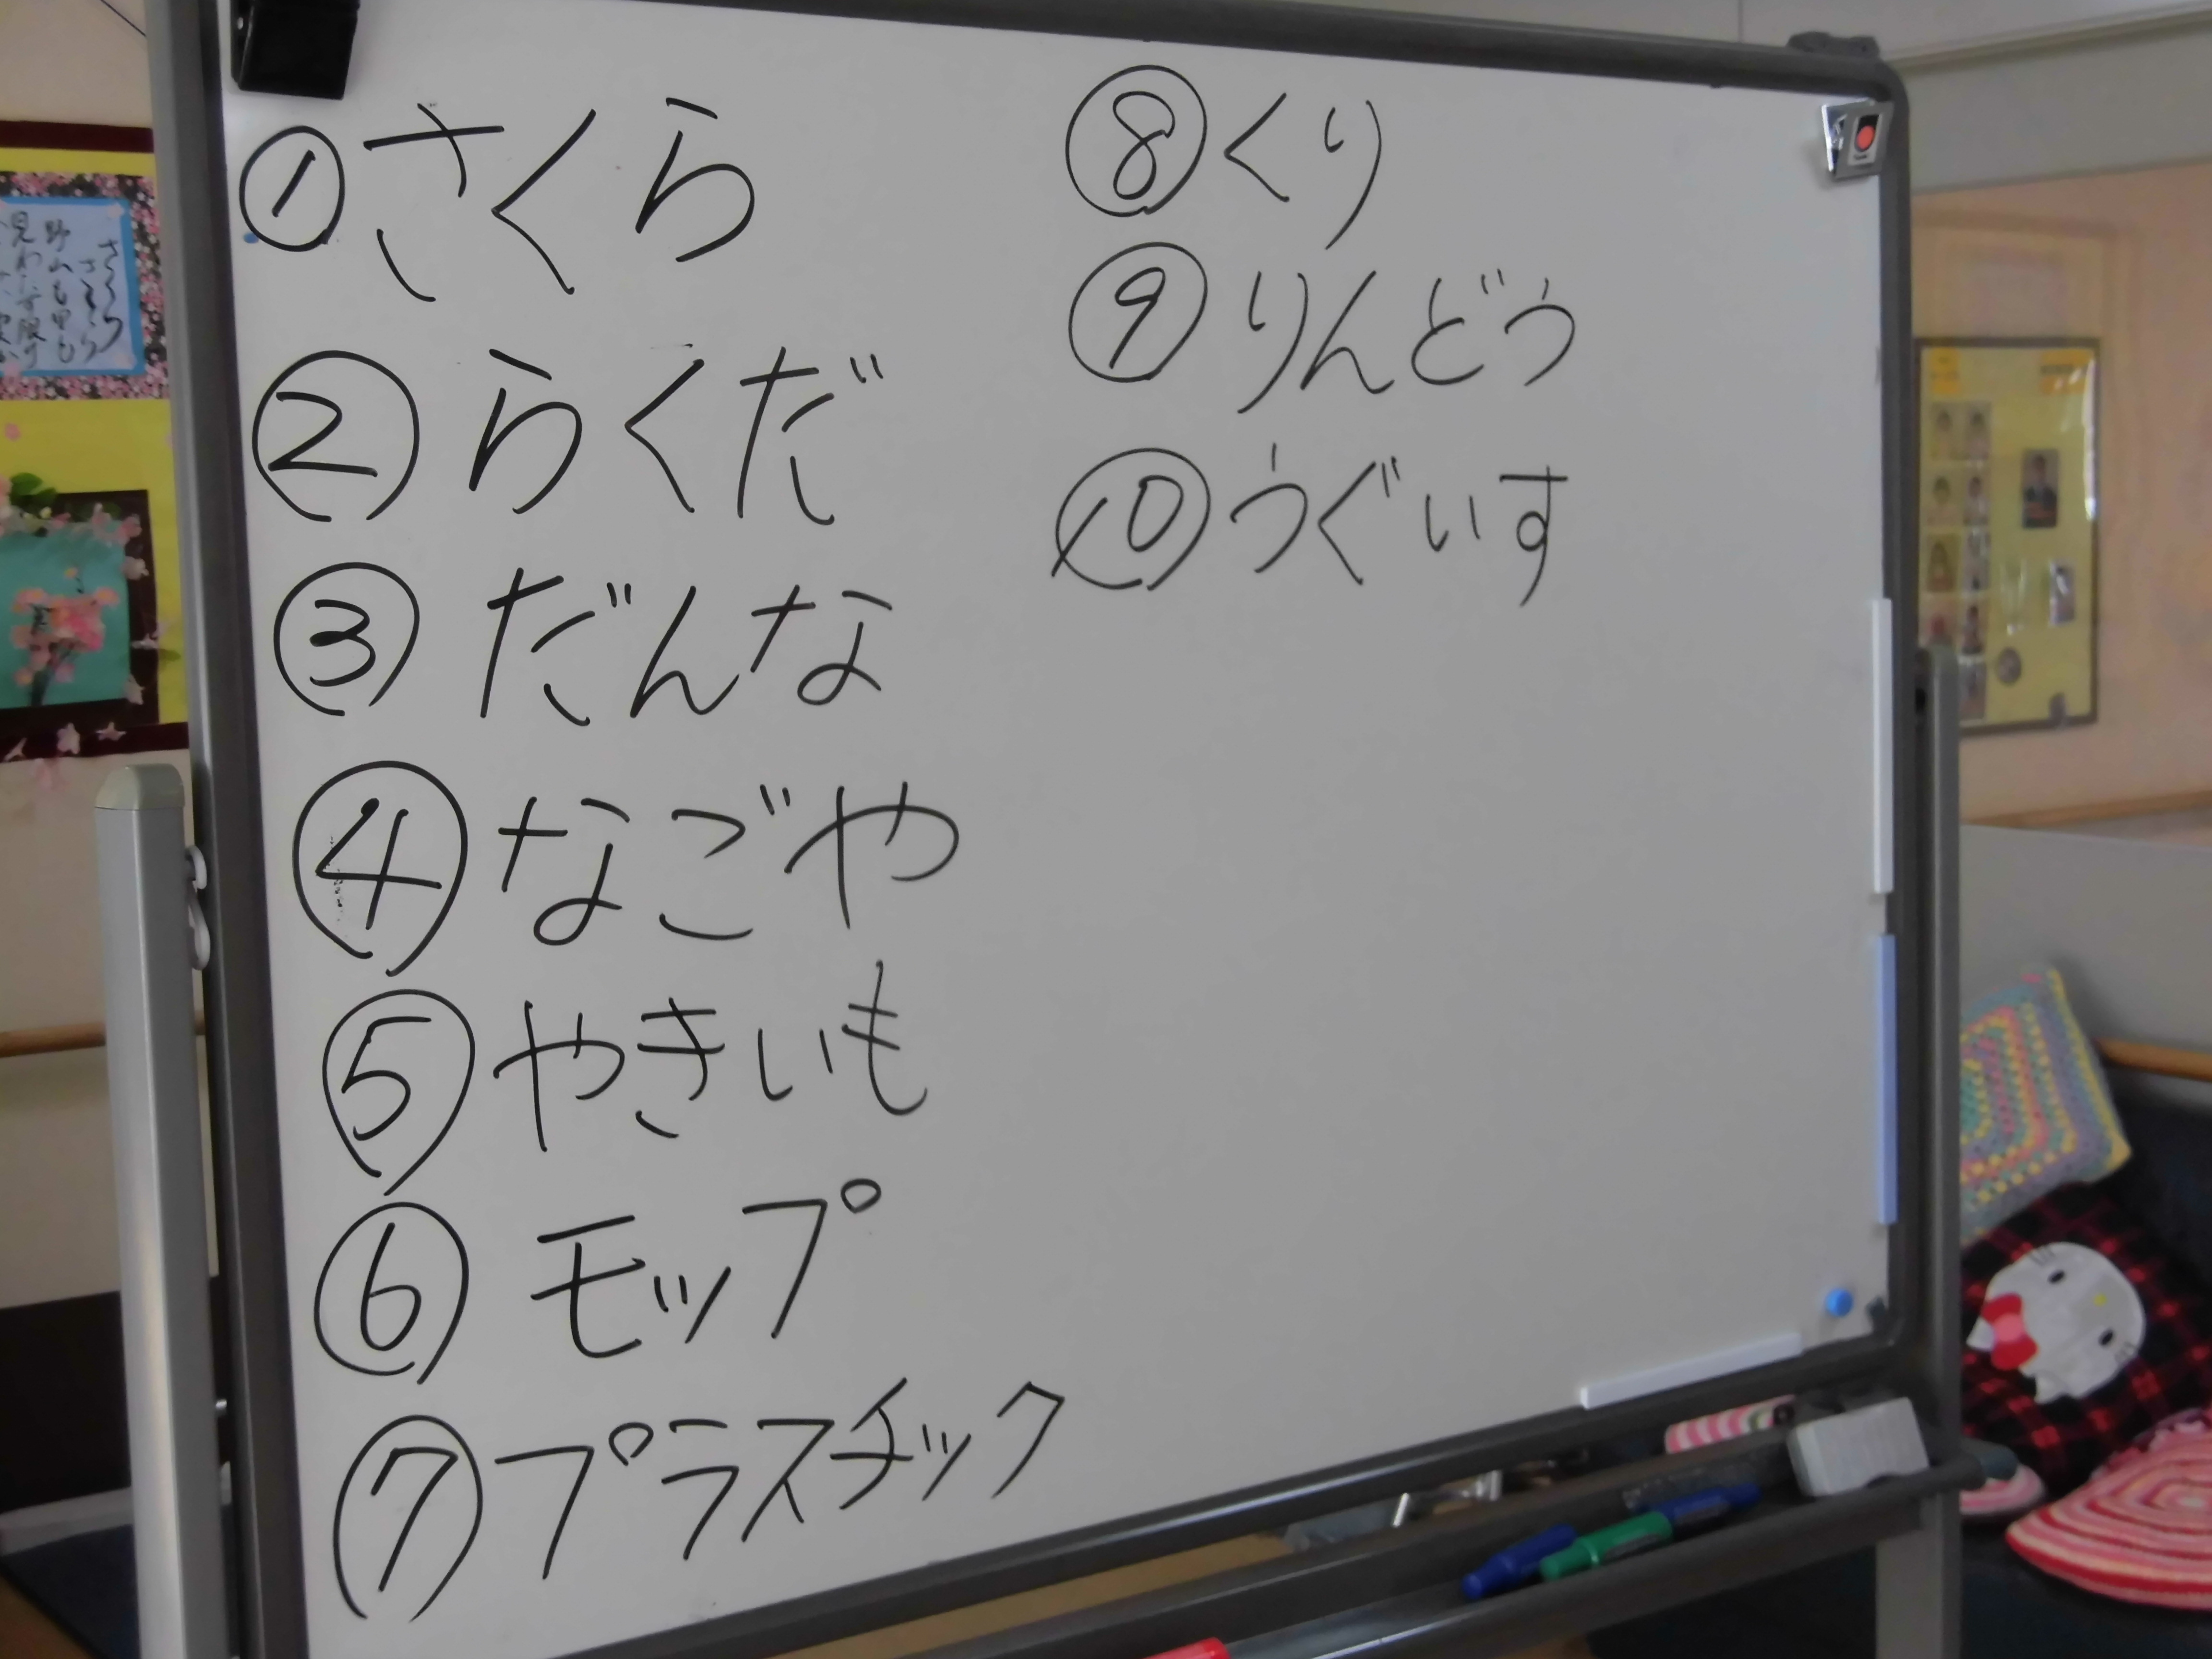 ①さくら
②らくだ
③だんな
④なごや
⑤やきいも
⑥モップ
⑦プラスチック
⑧くり
⑨りんどう
⑩うぐいす
さくら
さくら
野山も里も
見わたす限り